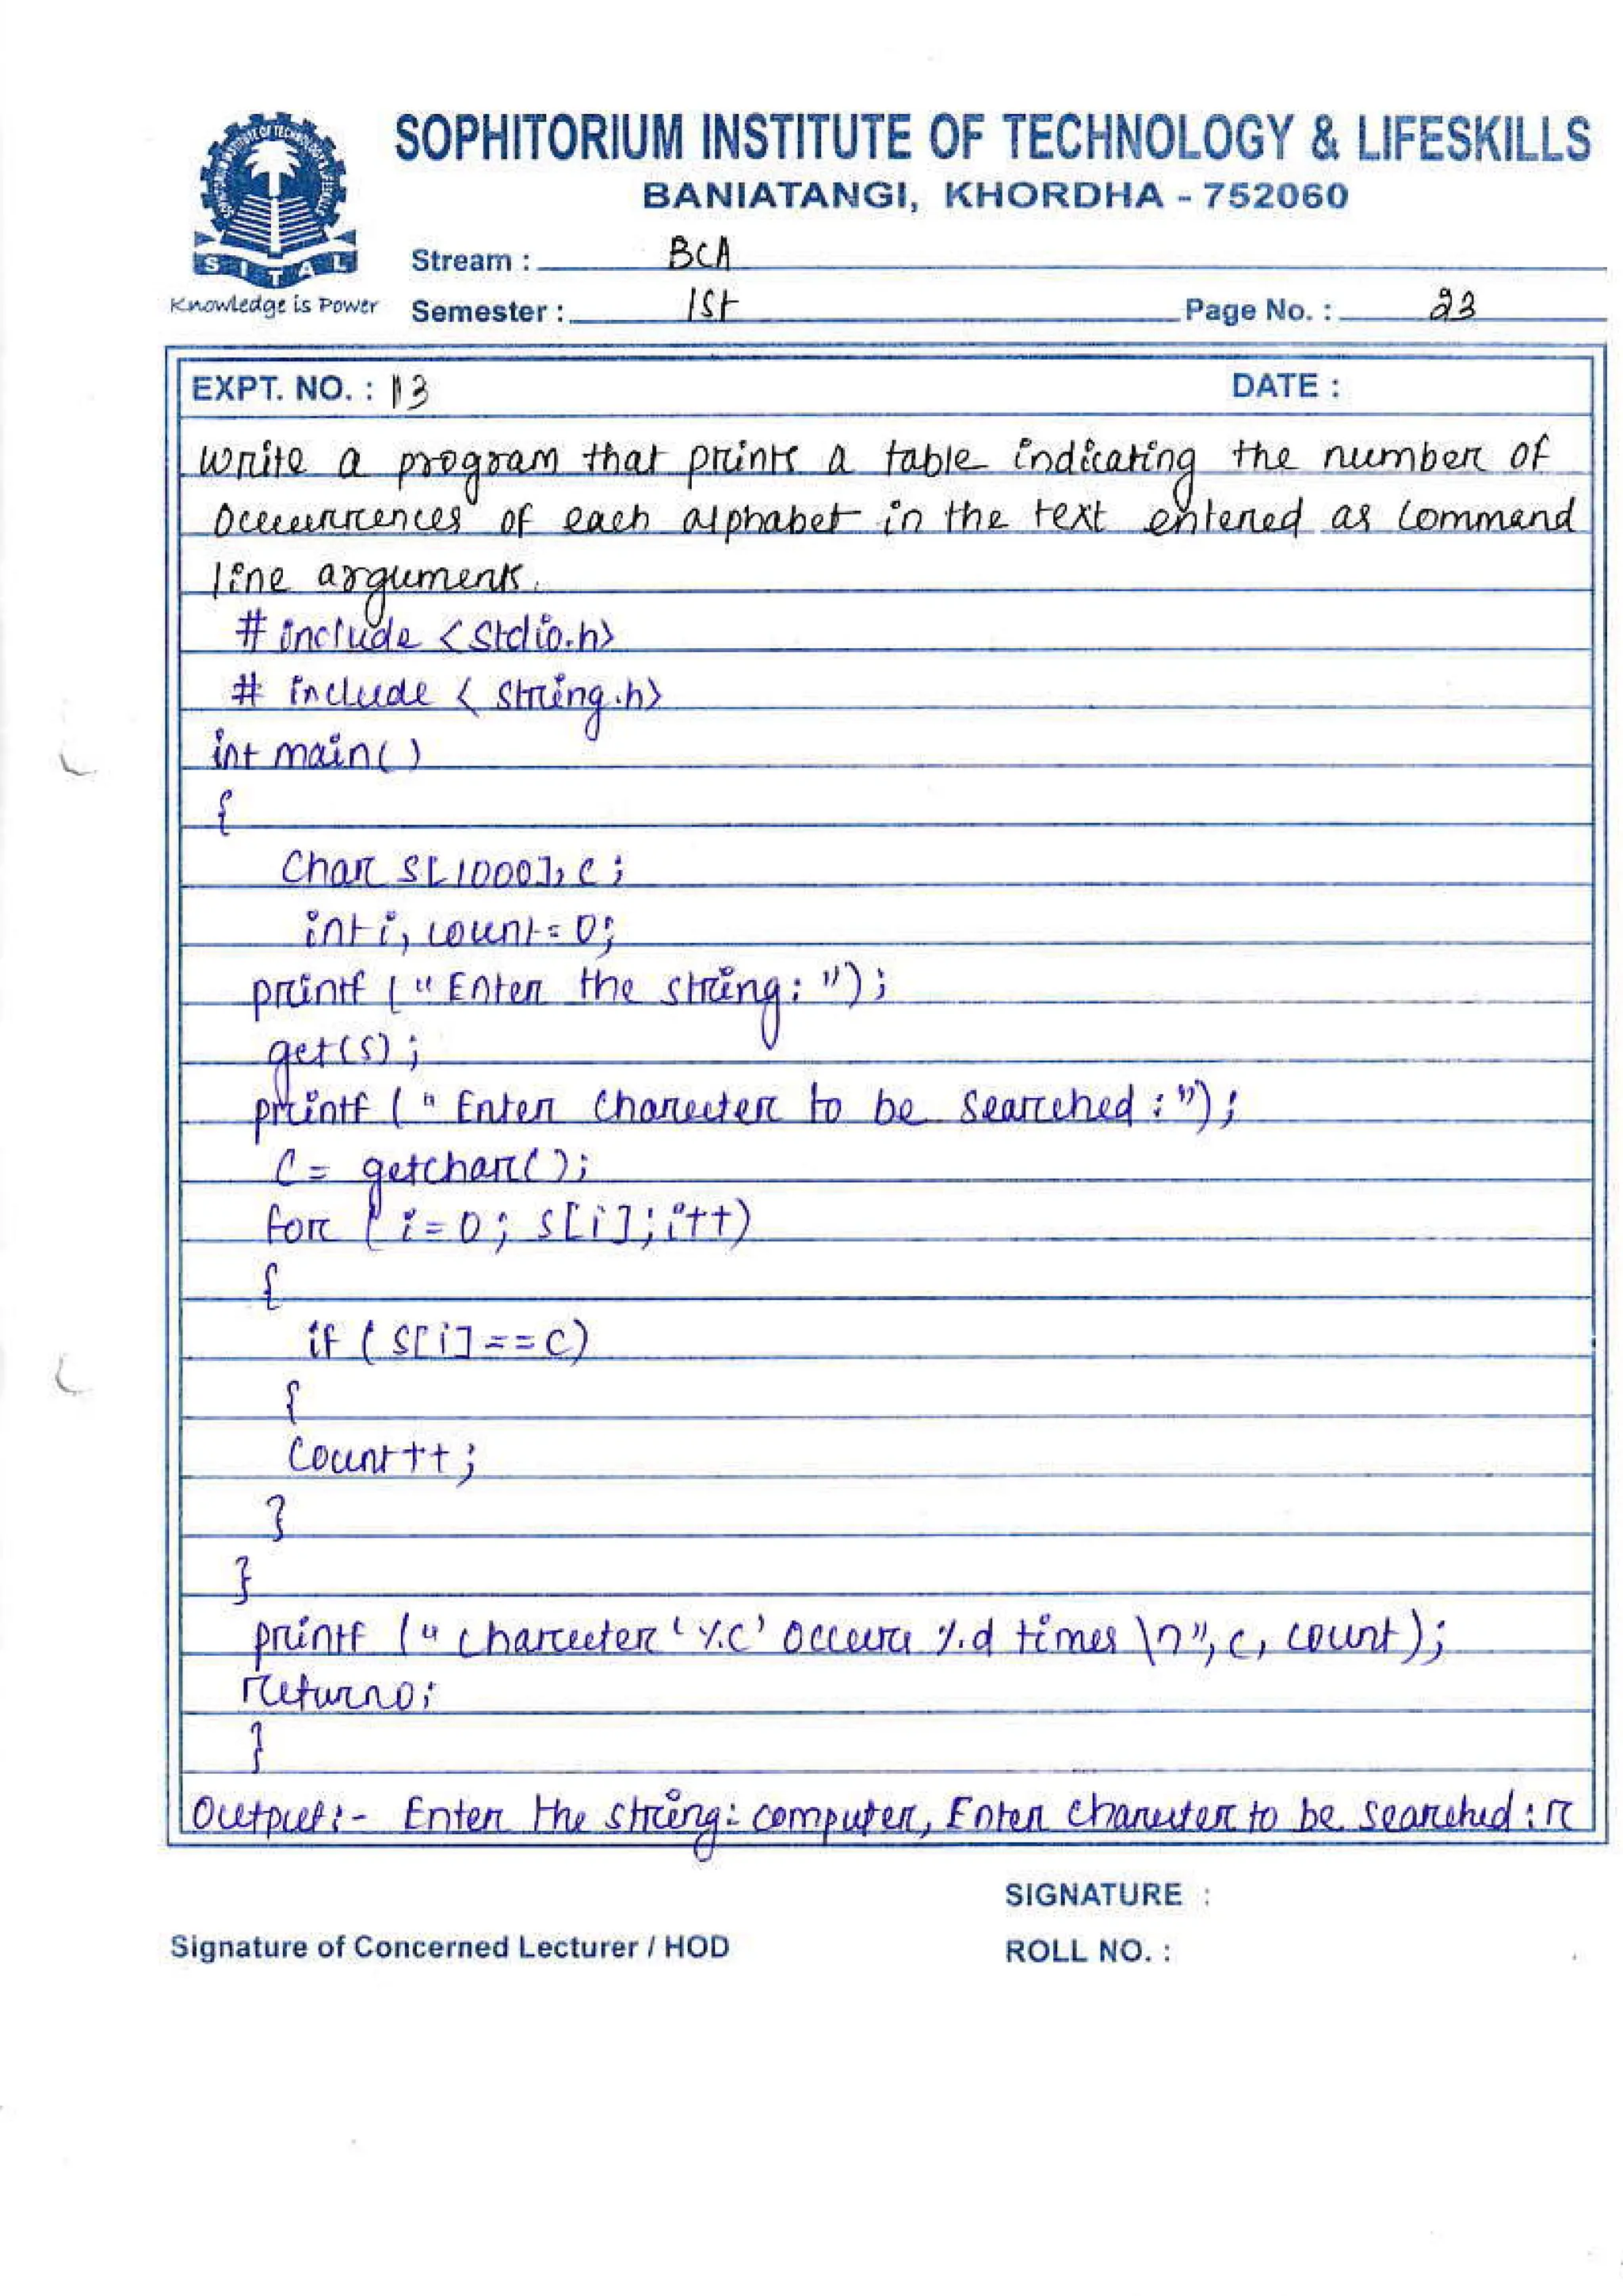 SOPHITORIUM INSTITUTE OF TECHNOLOGY & LIFESKILLS
BANIATANGI, KHORDHA - 752060
SITAL
Knowledge is Power
Stream : BCA
Semester : 1St Page No. : 23
EXPT. NO. : 13 DATE :
Write a program that prints a table indicating the number of
Occurrences of each alphabet in the text entered as command
line arguments.
# include <stdio.h>
# include < string.h>
int main( )
{
Char S[1000], C ;
int i, count = 0;
printf ( " Enter the string : ") ;
get(S) ;
printf ( " Enter Charecter to be Searched : ") ;
C = getchar( );
for ( i = 0 ; S[i] ; i++)
{
if ( S[i] == C)
{
Count ++ ;
}
}
printf ( " charecter ' %c' Occurs %d times \n", c, count ) ;
return 0;
}
Output :- Enter the string : computer, Enter Charecter to be searched : r
SIGNATURE :
Signature of Concerned Lecturer / HOD
ROLL NO. :